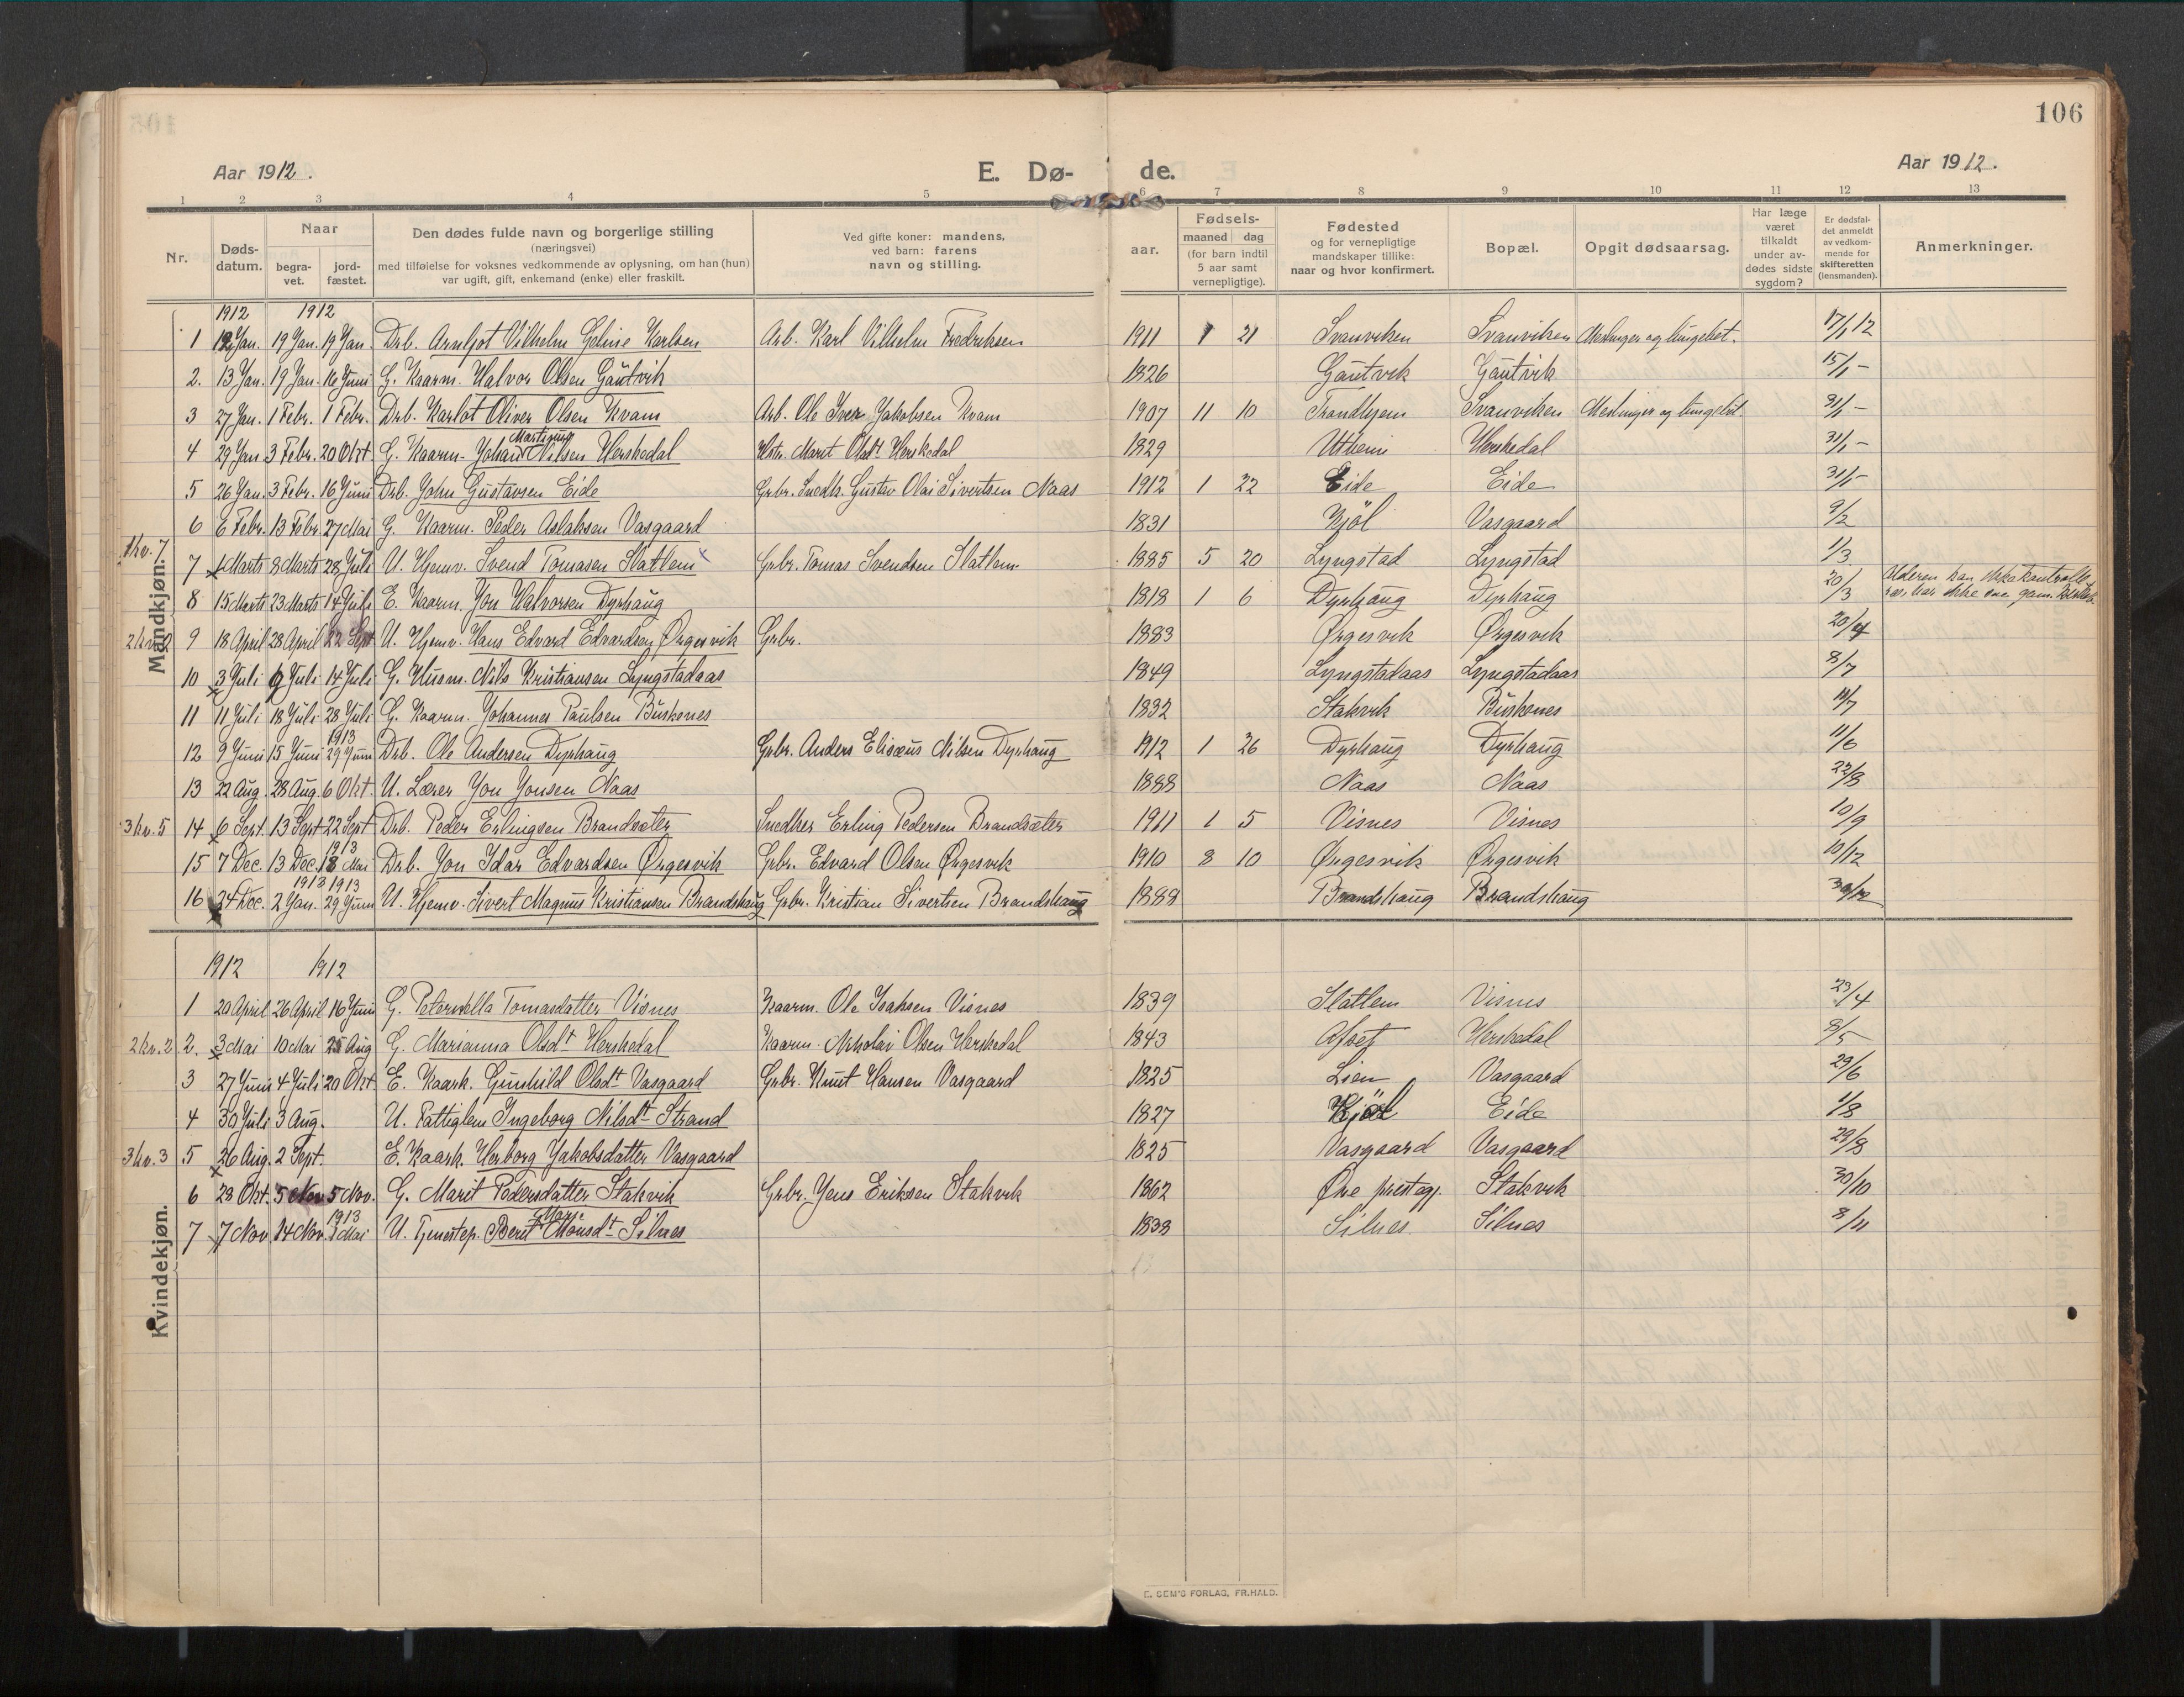 106
Aar 1912.
E. Dø- de.
Aar 1912.
1 2 3 4 5 6 7 8 9 10 11 12 13
Nr. Døds-datum. Naar begra-vet. jord-fæstet. Den dødes fulde navn og borgerlige stilling (næringsvei) med tilføielse for voksnes vedkommende av oplysning, om han (hun) var ugift, gift, enkemand (enke) eller fraskilt. Ved gifte koner: mandens, ved barn: farens navn og stilling. aar. Fødsels- maaned dag (for barn indtil 5 aar samt vernepligtige). Fødested og for vernepligtige mandskaper tillike: naar og hvor konfirmert. Bopæl. Opgit dødsaarsag. Har læge været tilkaldt under av-dødes sidste sygdom? Er dødsfal-det anmeldt av vedkom-mende for skifteretten (lensmanden). Anmerkninger.
Mandkjøn.
1912 1912
1 12 Jan. 19 Jan. 19 Jan Drb. Arnljot Vilhelm Karlsen Arb. Karl Vilhelm Fredriksen 1911 1 21 Svanviken Svanviken Meslinger og lungebet. 17/1 12
2. 13 Jan. 19 Jan. 16 Juni G. Kaarm. Halvor Olsen Gautvik 1826 Gautvik Gautvik 15/1 -
3 27 Jan. 1 Febr. 1 Febr. Drb. Karlot Oliver Olsen Kvam Arb. Ole Iver Jakobsen Kvam 1907 11 10 Trondhjem Svanviken Meslinger og lungebet. 31/1 -
4 29 Jan. 3 Febr. 20 Okt. G. Kaarm. Johan Martinus Nilsen Herskedal Hstr. Marit Olsdt Herskedal 1829 Utheim Herskedal 31/1 -
5 26 Jan. 3 Febr. 16 Juni Drb. John Gustavsen Eide Grbr. Snedk. Gustav Olai Sivertsen Naas 1912 1 22 Eide Eide 31/1 -
6 6 Febr. 13 Febr. 27 Mai G. Kaarm. Peder Aslaksen Vasgaard 1831 Kjöl Vasgaard 9/2
1 kv. 7
7 Marts 8 Marts 28 Juli U. Hjemv. Svend Tomasen Slatlem Grbr. Tomas Svendsen Slatlem 1885 5 20 Lyngstad Lyngstad 1/3
8 15 Marts 23 Marts 14 Juli E. Kaarm. Jon Halvorsen Dyrhaug 1818 1 6 Dyrhaug Dyrhaug 20/3 Alderen kan ikke kontrolle-
res, har ikke
2 kv. 2 9 18 April 28 April 22 Sept U. Hjemv. Hans Edvard Edvardsen Ørgesvik Grbr. 1883 Ørgesvik Ørgesvik 20/4
10 3 Juli 9 Juli 14 Juli G. Husm. Nils Kristiansen Lyngstadaas 1849 Lyngstadaas Lyngstadaas 8/7
11 11 Juli 18 Juli 28 Juli G. Kaarm. Johannes Paulsen Buskenes 1832 Stakvik Buskenes
1913
12 9 Juni 15 Juni 29 Juni Drb. Ole Andersen Dyrhaug Grbr. Anders Elisæus Nilsen Dyrhaug 1912 1 26 Dyrhaug Dyrhaug 11/6
13 22 Aug. 28 Aug. 6 Okt. U. Lærer Jon Jonsen Naas 1888 Naas Naas 22/8
3 kv. 5 14 6 Sept. 13 Sept 22 Sept Drb. Peder Erlingsen Brandsæter Snedker Erling Pedersen Brandsæter 1911 1 5 Visnes Visnes 10/9
1913
15 7 Dec. 13 Dec. 18 Mai Drb. Jon Idar Edvardsen Ørgesvik Grbr. Edvard Olsen Ørgesvik 1910 8 10 Ørgesvik Ørgesvik 10/12
1913 1913
16 24 Dec. 2 Jan. 29 Juni U. Hjemv. Sivert Magnus Kristiansen Brandshaug Grbr. Kristian Sivertsen Brandshaug 1888 Brandshaug Brandshaug 30/12
Kvindekjøn.
1912 1912
1 20 April 26 April 16 Juni G. Peternella Tomasdatter Visnes Kaarm. Ole Isaksen Visnes 1839 Slatlem Visnes 23/4
2 kv. 2 2. 3 Mai 10 Mai 25 Aug G. Marianna Olsdt Herskedal Kaarm. Nikolai Olsen Herskedal 1843 Afset Herskedal 8/5
3 27 Juni 4 Juli 20 Okt. E. Kaark. Gunhild Olsdt Vasgaard Grbr. Knut Hansen Vasgaard 1825 Lien Vasgaard 29/6
4 30 Juli 3 Aug. U. Fattiglem Ingeborg Nilsdt Strand 1827 Kjöl Eide 1/8
3 kv. 3 5 26 Aug. 2 Sept. E. Kaark. Herborg Jakobsdatter Vasgaard 1825 Vasgaard Vasgaard 29/8
6 28 Okt. 5 Nov 5 Nov. G. Marit Pedersdatter Stakvik Grbr. Jens Eriksen Stakvik 1862 Øre prestegj. Stakvik 30/10
1913
7 7 Nov 14 Nov. 3 Mai U. Tjenestep. Berit Mari Monsdt Silnes 1838 Silnes Silnes 8/11
E. SEM'S FORLAG, FR.HALD.